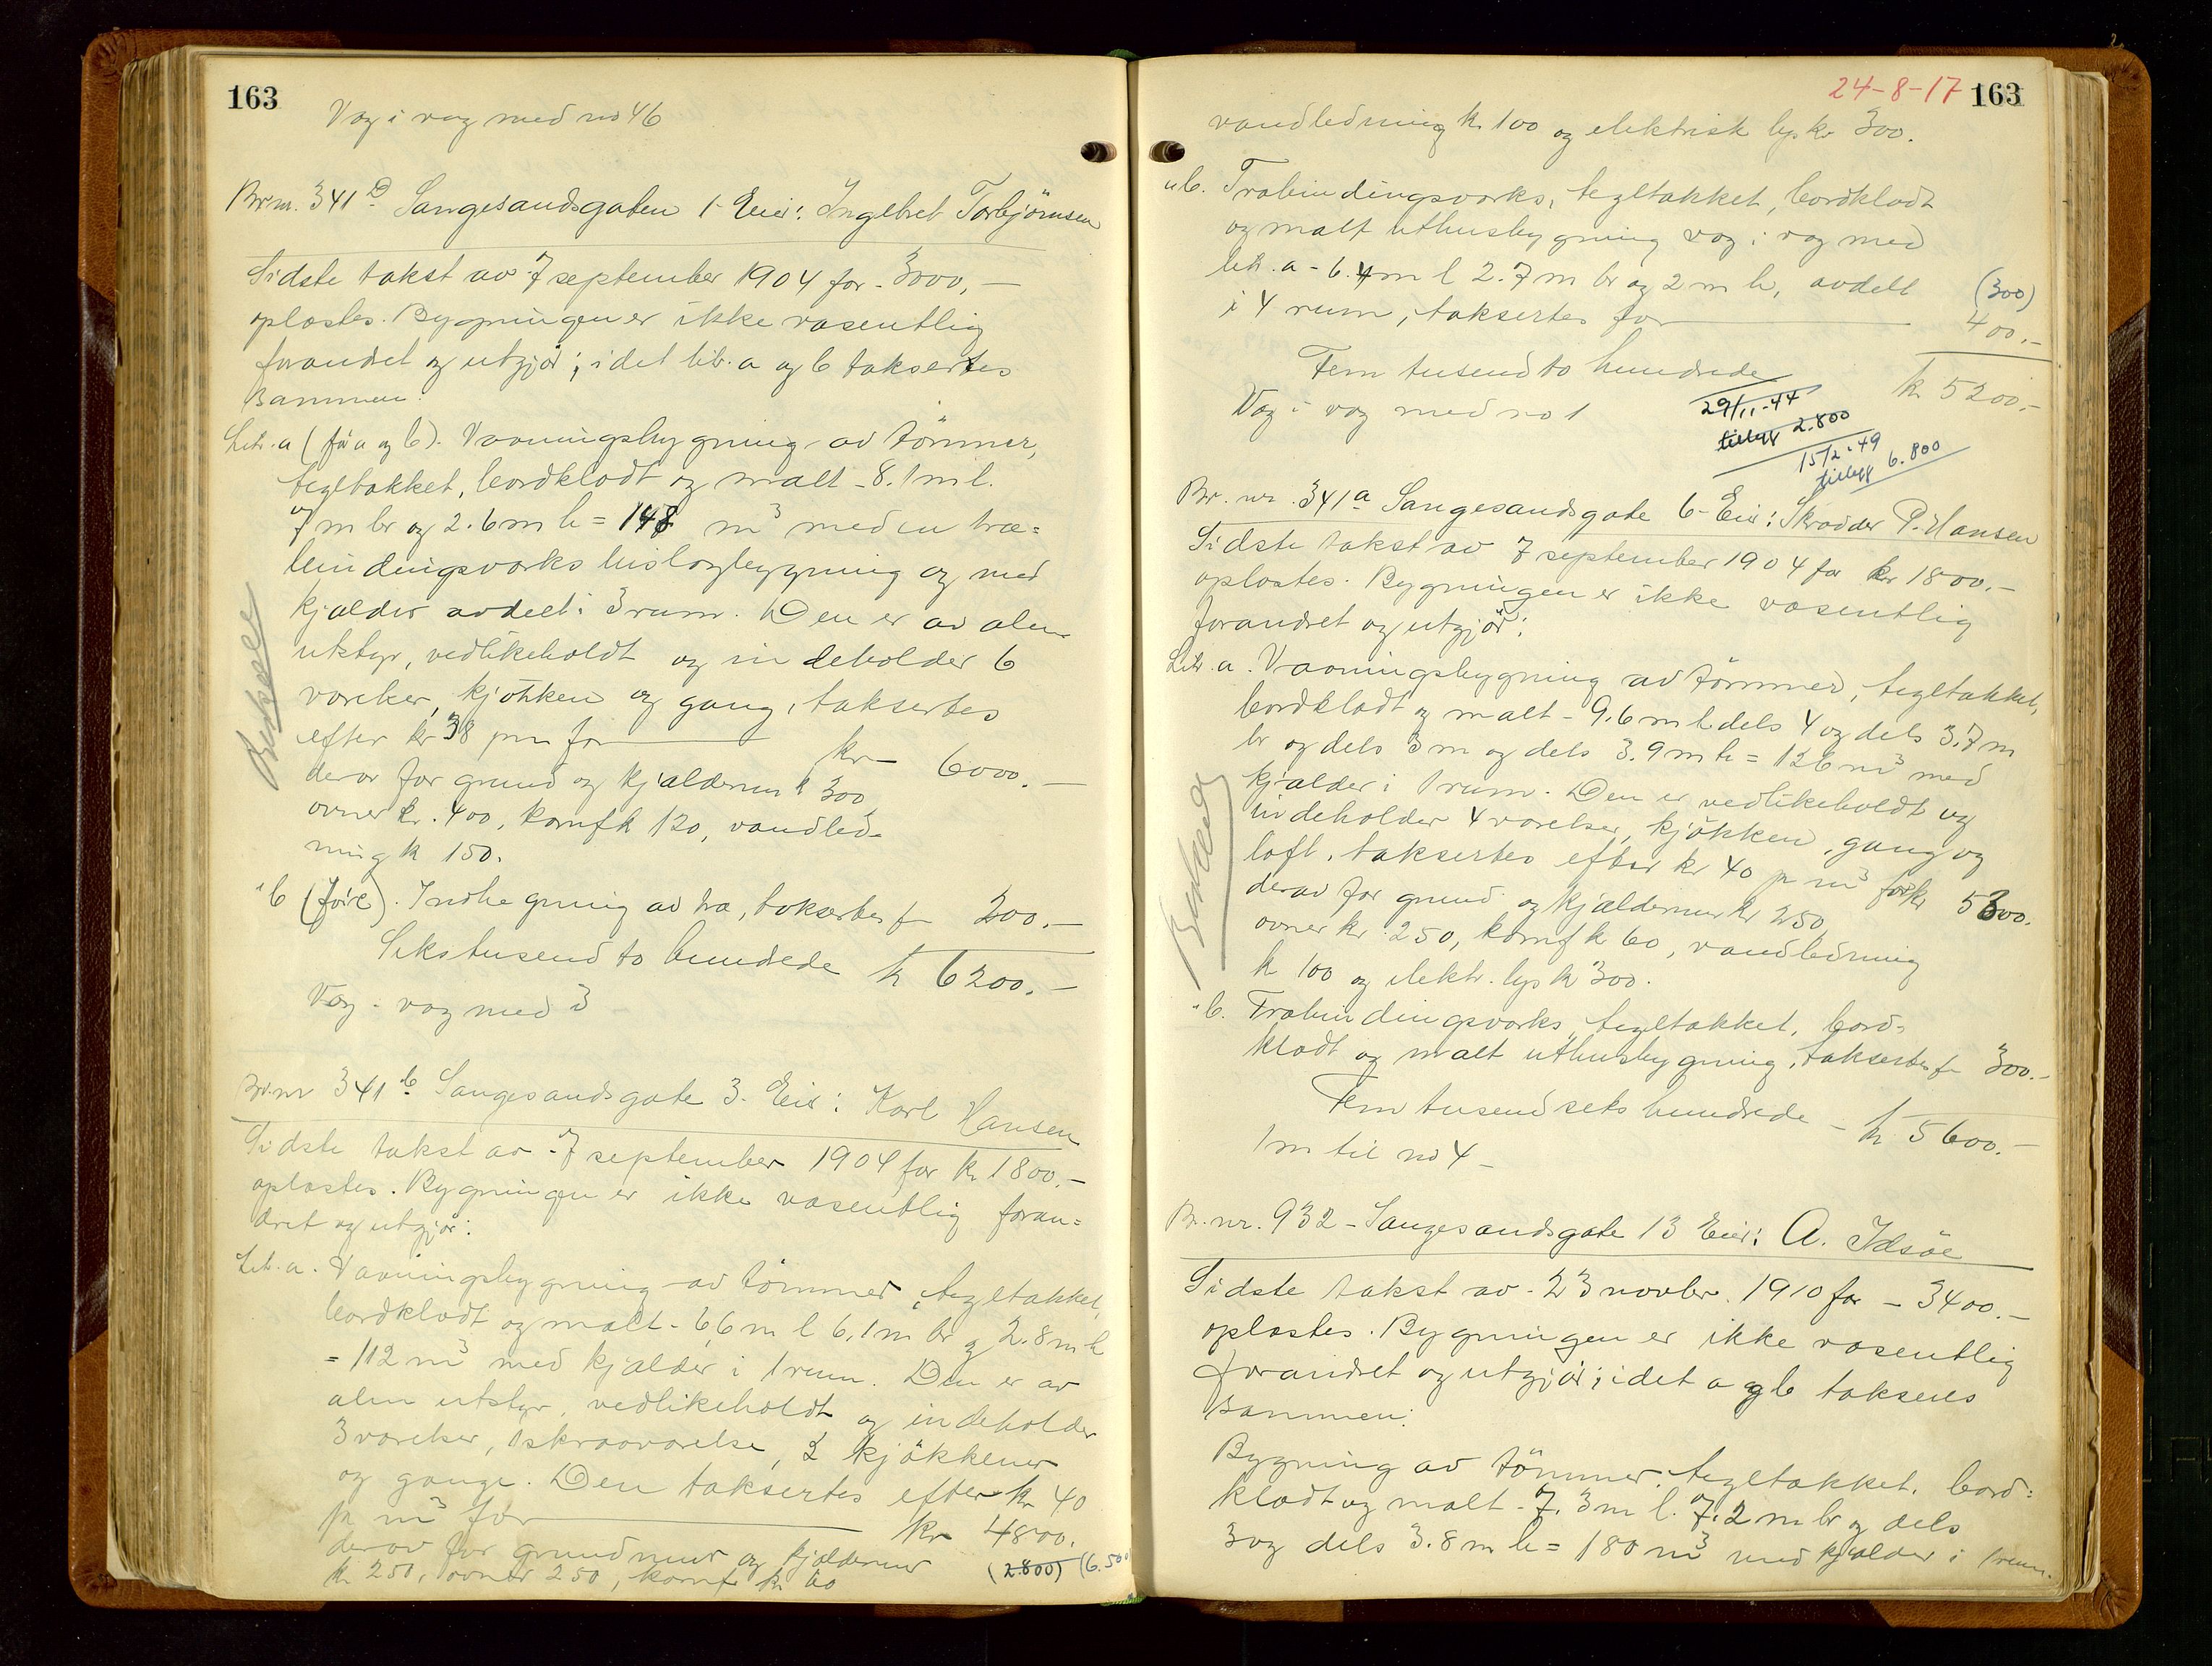 163
Væg i væg med no 46
Br.nr. 341D Langesandsgaten 1 - Eier: Ingebret Torbjörnsen
Sidste takst av 7 september 1904 for - 3000,-
oplæstes. Bygningen er ikke væsentlig
forandret og utgjör; idet litr. a og b taksertes
sammen.
Litr. a (för a og b). Vaaningsbygning av tömmer,
tegltækket, bordklædt og malt - 8.1 m l.
7 m br og 2.6 m h = 148 m3 med en træ=
bindingsverks bislagbygning og med
kjælder avdelt i 3 rum. Den er av alm
utstyr, vedlikeholdt og indeholder 6
værelser, kjökken og gang, taksertes
efter kr 38 pr m for kr 6000.-
derav for grund og kjældermur k 300,
ovner kr. 400, komf k 120, vandled-
ning k 150.
" b (före). Indhegning av træ, taksertes f 200.-
Sekstusend to hundrede k 6200.-
Væg i væg med 3
Br.nr 341b Langesandsgate 3. Eier: Karl Hansen
Sidste takst av 7 september 1904 for kr 1800.-
oplæstes. Bygningen er ikke væsentlig foran=
dret og utgjör:
Litr. a. Vaaningsbygning av tömmer, tegltækket,
bordklædt og malt - 6.6 m l 6.1 m br og 2.8 m h
= 112 m3 med kjælder i 1 rum. Den er av
alm utstyr, vedlikeholdt og indeholder
3 værelser, 1 skraaværelse, 2 kjökkener
og gange. Den taksertes efter kr 40
pr m3 for kr 4800.
derav for grundmur og kjældermur
kr 250, ovner 250, komf kr 60 (2.800) (6.500
24-8-17 163
vandledning k 100 og elektrisk lys kr 300.
" b. Træbindingsverks, tegltækket, bordklædt
og malt uthusbygning væg i væg med
litr. a - 6.4 m l 2.7 m br og 2 m h, avdelt
i 4 rum, taksertes for (300)
400.-
Fem tusend to hundrede k 5200.-
Væg i væg med no 1
29/11-44
tillegg 2.800
15/2-49
tillegg 6.800
Br. nr. 341a Langesandsgate 6 - Eier: Skrædder P. Hansen
Sidste takst av 7 september 1904 for kr 1800.-
oplæstes. Bygningen er ikke væsentlig
forandret og utgjör:
Litr. a. Vaaningsbygning av tömmer, tegltækket,
bordklædt og malt - 9.6 m l dels 4 og dels 3.7 m
br og dels 3 m og dels 3.9 m h = 126 m3 med
kjælder i 1 rum. Den er vedlikeholdt og
indeholder 4 værelser, kjökken, gang og
loft, taksertes efter kr 40 pr m3 for kr 5300.
derav for grund og kjældermur kr 250,
ovner kr. 250, komf k 60, vandledning
k 100 og elektr. lys k 300.
" b. Træbindingsverks, tegltækket, bord-
klædt og malt uthusbygning, taksertes f 300.-
Fem tusend seks hundrede - k 5600.-
1 m til no 4 -
Br. nr. 932 - Langesandsgate 13 Eier: A. Idsöe
Sidste takst av - 23 novbr. 1910 for - 3400.-
oplæstes. Bygningen er ikke væsentlig
forandret og utgjör; idet a og b takseres
sammen:
Bygning av tömmer, tegltækket, bord=
klædt og malt - 7.3 m l. 7.2 m br og dels
3 og dels 3.8 m h = 180 m3 med kjælder i 1 rum.